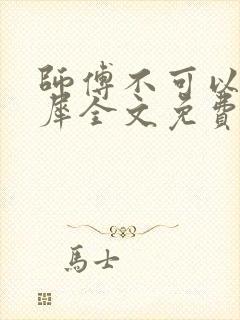 師傅不可以
犀全文免費
馬士